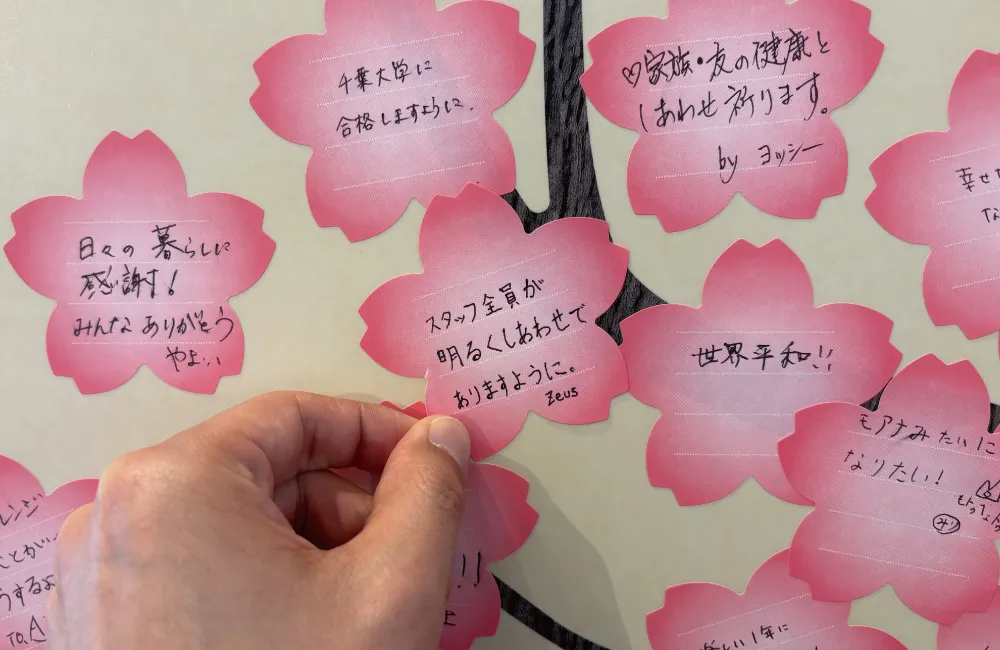 千葉大学に
合格しますように.
♡家族・友の健康と
しあわせ祈ります。
by ヨッシー
日々の暮らしに
感謝す!
みんなありがとう
やよい
スタッフ全員が
明るくしあわせで
ありますように。
Zeus
世界平和!!
幸せ
な
モアナみたいに
なりたい!
みり
レンジ
うするよ
TO.A
!!
楽しい1年に